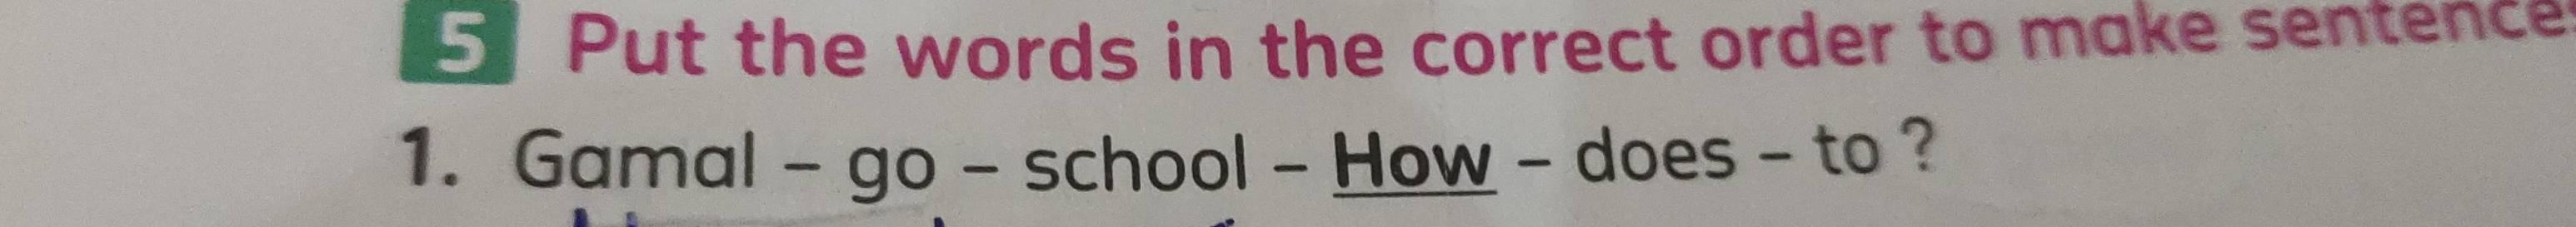 5 Put the words in the correct order to make sentence
1. Gamal – go – school – How – does – to ?